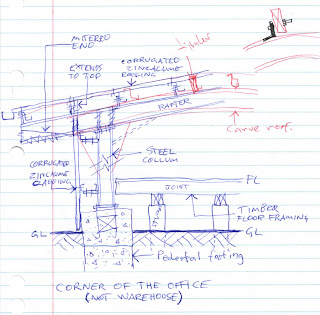 MITERED
END
EXTENDS
TO TOP
CORRUGATED
ZINCALUME
ROOFING
RAFTER
Curve roof.
CORRUGATED
ZINCALUME
CLADDING
STEEL
COLLUM
JOIST
FL
STUMP
TIMBER
FLOOR FRAMING
GL
GL
Pedestal footing
CORNER OF THE OFFICE
(NOT WAREHOUSE)